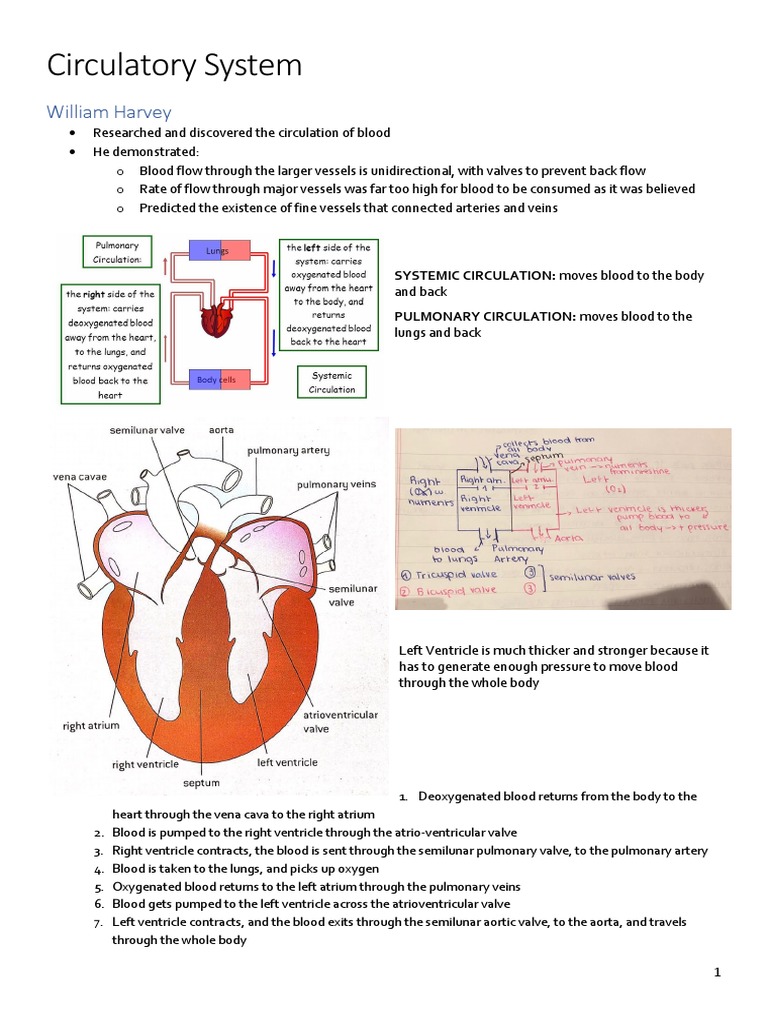 Circulatory System
William Harvey
• Researched and discovered the circulation of blood
• He demonstrated:
o Blood flow through the larger vessels is unidirectional, with valves to prevent back flow
o Rate of flow through major vessels was far too high for blood to be consumed as it was believed
o Predicted the existence of fine vessels that connected arteries and veins
Pulmonary
Circulation:
Lungs
the left side of the
system: carries
oxygenated blood
away from the heart
to the body, and
returns
deoxygenated blood
back to the heart
the right side of the
system: carries
deoxygenated blood
away from the heart,
to the lungs, and
returns oxygenated
blood back to the
heart
Body cells
Systemic
Circulation
SYSTEMIC CIRCULATION: moves blood to the body
and back
PULMONARY CIRCULATION: moves blood to the
lungs and back
semilunar valve
aorta
pulmonary artery
vena cavae
pulmonary veins
semilunar
valve
atrioventricular
valve
right atrium
right ventricle
left ventricle
septum
collects blood from
all body
vena
cava
septum
pulmonary
vein
Right
numents
Right atri.
1
2
Left
(O₂)
Right
ventricle
Left
ventricle
Left ventricle is thicker
pump blood to
all body → + pressure
Aorta
blood
to lungs
Pulmonary
Artery
1 Tricuspid valve
3
semilunar valves
2 Bicuspid valve
3
Left Ventricle is much thicker and stronger because it
has to generate enough pressure to move blood
through the whole body
1. Deoxygenated blood returns from the body to the
heart through the vena cava to the right atrium
2. Blood is pumped to the right ventricle through the atrio-ventricular valve
3. Right ventricle contracts, the blood is sent through the semilunar pulmonary valve, to the pulmonary artery
4. Blood is taken to the lungs, and picks up oxygen
5. Oxygenated blood returns to the left atrium through the pulmonary veins
6. Blood gets pumped to the left ventricle across the atrioventricular valve
7. Left ventricle contracts, and the blood exits through the semilunar aortic valve, to the aorta, and travels
through the whole body
1